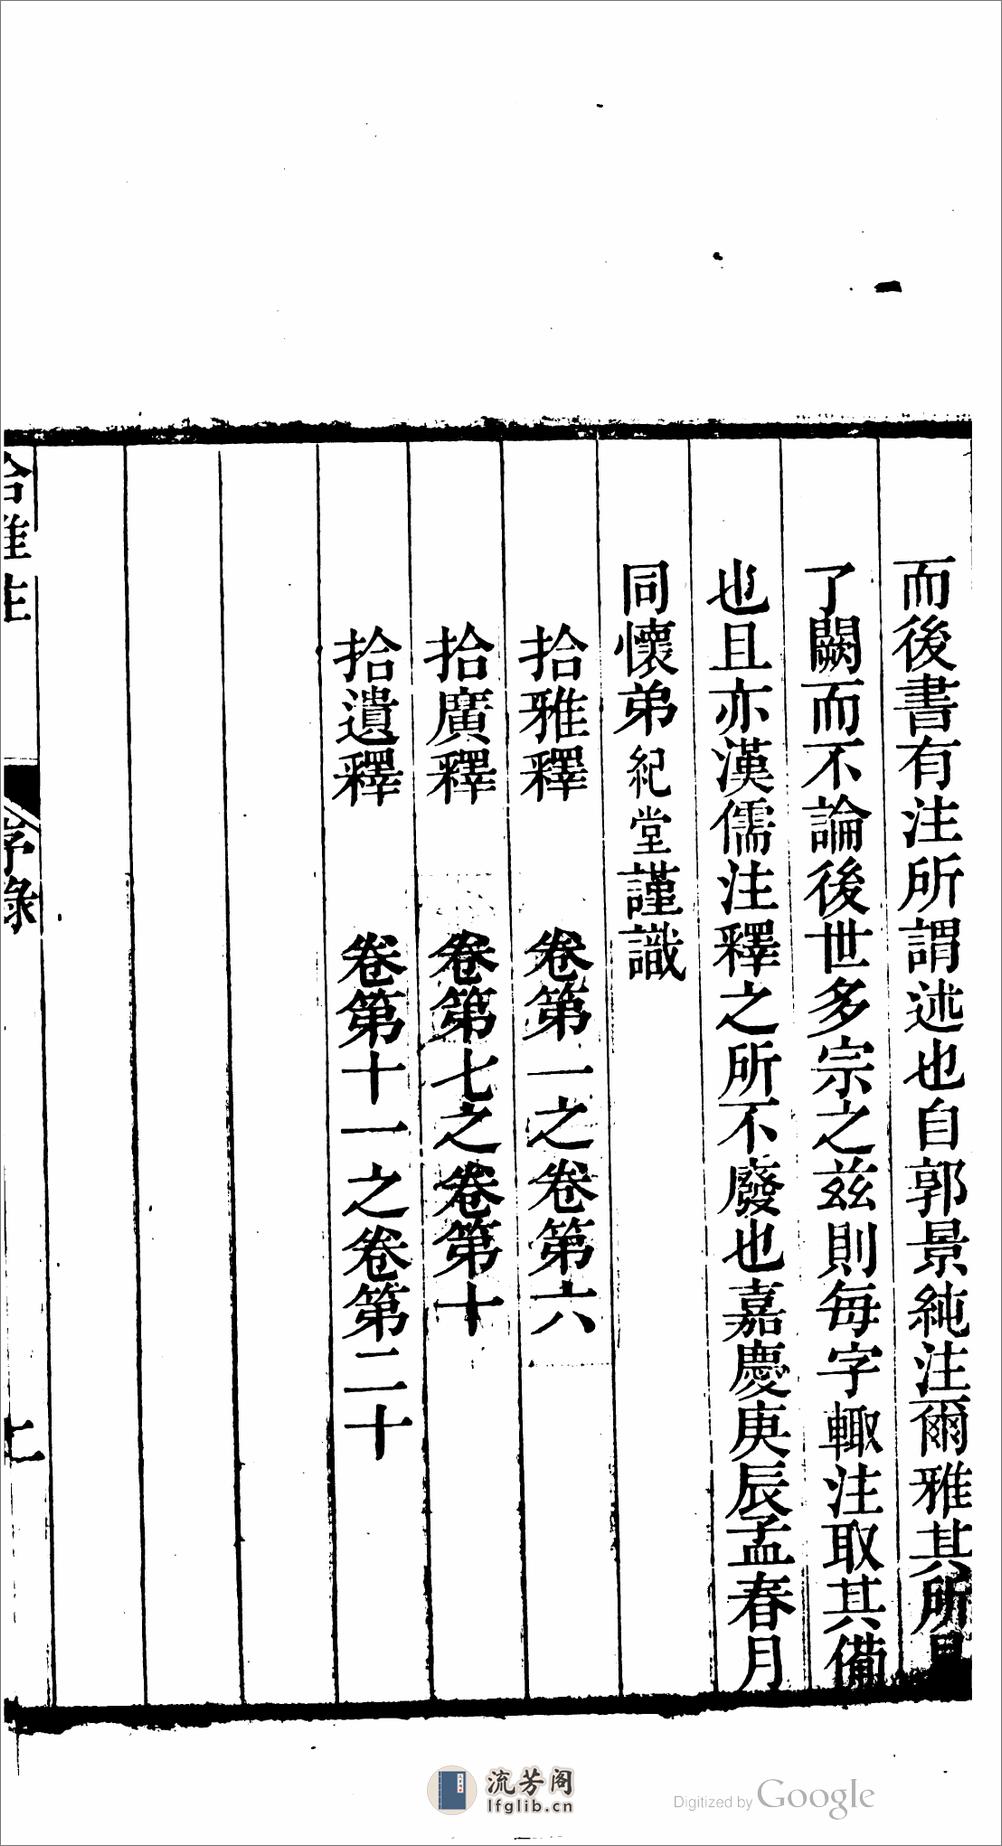 而後書有注所謂述也自郭景純注爾雅其所
了闕而不論後世多宗之茲則每字輙注取其備
也且亦漢儒注釋之所不廢也嘉慶庚辰孟春月
同懷弟紀堂謹識
拾雅釋 卷第一之卷第六
拾廣釋 卷第七之卷第十
拾遺釋 卷第十一之卷第二十
拾雅注 序錄
流芳阁
lfglib.cn
Digitized by Google